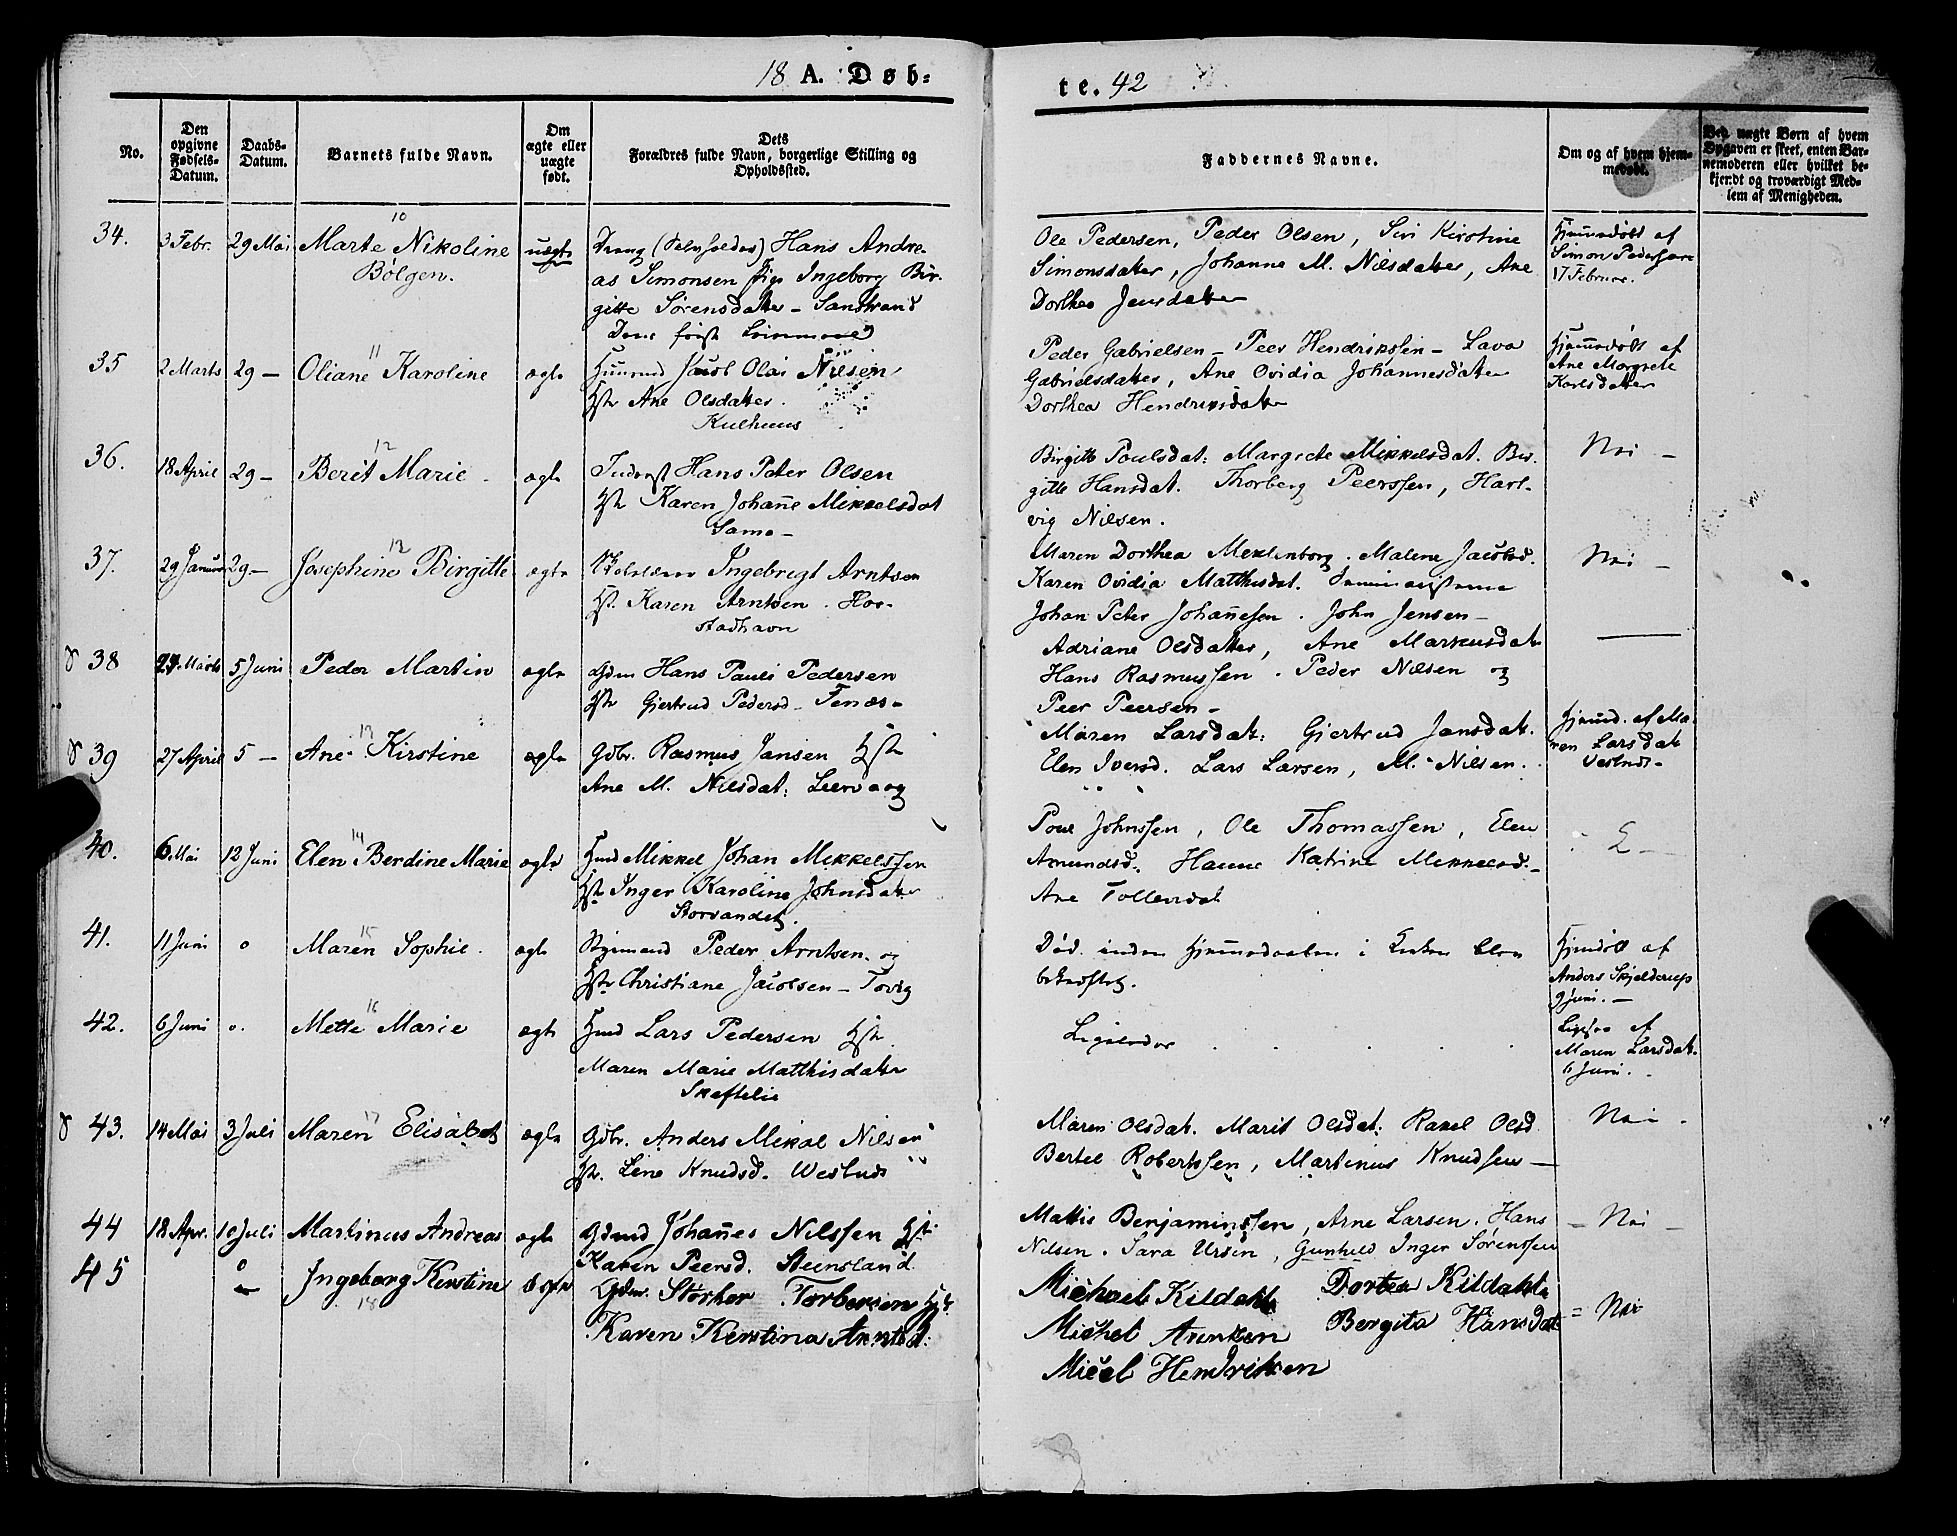 18 A. Døb=
te. 42
No.
Den opgivne Fødsels-Datum.
Daabs-Datum.
Barnets fulde Navn.
Om ægte eller uægte født.
Dets
Forældres fulde Navn, borgerlige Stilling og
Opholdsted.
Faddernes Navne.
Om og af hvem hjem-
medøbt.
Ved uægte Børn af hvem
Opgaven er skeet, enten Bar-
nemoderen eller hvilket be-
kjendt og troværdigt Med-
lem af Menigheden.
34. 3 Febr. 29 Mai Marte Nikoline uægte
10
Bølgen.
Hans Andre-
as Simonsen Pige Ingeborg Bir-
gitte Sørensdatter - Sandstrand
Ole Pedersen, Peder Olsen, Siri Kirstine
Simonsdatter, Johanne M. Nilsdatter, Ane
Dorthea Jensdatter
Hjemmedøbt af
Simon Pedersen
17 Februar.
35 2 Marts 29 - Oliane Karoline ægte
11
Huusmd Jacob Olai Nilsen
Hst Ane Olsdatter.
Kulhuus
Peder Gabrielsen - Peer Hendriksen - Lava
Gabrielsdatter, Ane Ovidia Johannesdatter
Dorthea Hendriksdatter
Hjemmedøbt af
Ane Margrete
Karlsdatter
36. 18 April 29 - Berit Marie - ægte
12
Inderst Hans Peter Olsen
Hst Karen Johanne Mikkelsdat
Birgitte Poulsdat: Margrete Mikkelsdat. Bir-
gitte Hansdat. Thorberg Peerssen, Hart-
vig Nilsen.
Nei -
37. 29 Januar 29 - Josephine Birgitte ægte
13
Skolelærer Ingebrigt Arntsen
Hst. Karen Arntsen. Hov-
stadhavn
Maren Dorthea Meklenborg. Malene Jacobsd.
Karen Ovidia Matthisdat. Seminaristerne
Johan Peter Johannesen. John Jensen -
Nei -
38 24 Marts 5 Juni Peder Martin ægte
Gdm Hans Pauli Pedersen
Hst Gjertrud Pedersd - Tenæs -
Adriane Olsdatter, Ane Markusdat
Hans Rasmussen. Peder Nilsen og
Peer Peersen -
39 27 April 5 - Ane Kirstine ægte
13
Gdbr. Rasmus Jansen Hst
Ane M. Nilsdat: Leervaag
Maren Larsdat: Gjertrud Jansdat.
Elen Iversd. Lars Larsen, M. Nilsen.
Hjemmd. af Ma-
ren Larsdat
40. 6 Mai 12 Juni Elen Berdine Marie ægte
14
Hmd Mikkel Johan Mikkelssen
Hst Inger Karoline Johnsdatter
Storvandet.
Poul Johnssen, Ole Thomassen, Elen
Amundsd. Hanne Katrine Mikkelsd -
Ane Tollevsdat
41. 11 Juni o Maren Sophie. ægte
15
Peder Arntsen og
Hst Christiane Jacobsen - Tovig
Død inden Hjemmedaaben i Kirken blev
bekræftet.
Hjemdøbt af
Anders Skjelderup
9 Juni. -
42. 6 Juni o. Mette Marie ægte
16
Hmd Lars Pedersen Hst
Maren Marie Matthisdatter
Skoftelie
Ligeledes
Ligesaa af
Maren Larsdat.
6 Juni.
43. 14 Mai 3 Juli Maren Elisabet ægte
17
Gdbr. Anders Mikal Nilsen
Hst. Lene Knudsd. Westnes
Maren Olsdat. Marit Olsdat: Rakel Olsd.
Bertel Robertssen, Martinus Knudsen -
Nei -
44 18 Apr. 10 Juli Martinus Andreas ægte
Gdmd Johannes Nilssen Hst
Karen Peersd. Steensland
Mattis Benjaminssen, Arne Larsen. Hans
Nilsen. Sara Ursin, Gunhild Inger Sørenssen
- Nei -
45 o Ingeborg Kerstine ægte
18
Gdm. Storker Torbersen Hst
Karen Kerstina Arntsd:
Michael Kildahl Dortea Kildahl
Michel Arentzen Bergita Hansdat
Micel Hendriksen
= Nei